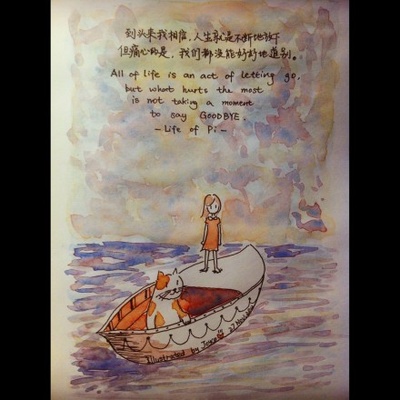 到头来我相信,人生就是不断地放下
但痛心的是,我们都没能好好地道别。
All of life is an act of letting go,
but what hurts the most
is not taking a moment
to say GOODBYE.
- Life of Pi -
Illustrated by